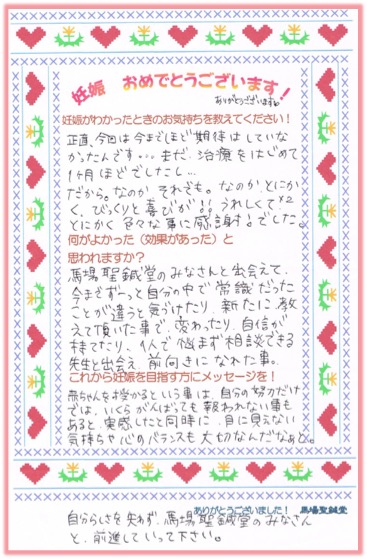 妊娠 おめでとうございます!
ありがとうございます。
妊娠がわかったときのお気持ちを教えてください!
正直、今回は今までほど期待はしていな
かったんです・・・まだ、治療をはじめて
1ヶ月ほどでしたし…
だから。なのか それでも。なのか、とにか
く、びっくりと喜びが!! うれしくて×2
とにかく 色々な事に感謝!。でした。
何がよかった(効果があった)と
思われますか?
馬場聖鍼堂のみなさんと出会えて、
今まですっと自分の中で常識だった
ことが違うと気づけたり 新たに教
えて頂いた事で、変わったり、自信が
持てたり、1人で悩まず相談できる
先生と出会え 前向きに なれた事。
これから妊娠を目指す方にメッセージを!
赤ちゃんをお授かるという事は、自分の努力だけ
では、いくらがんばっても報われない事も
あると、実感したと同時に、目に見えない
気持ちや心のバランスも大切なんだなぁと。
ありがとうございました! 馬場聖鍼堂
自分らしさを失わず、馬場聖鍼堂のみなさん
と、前進していって下さい。